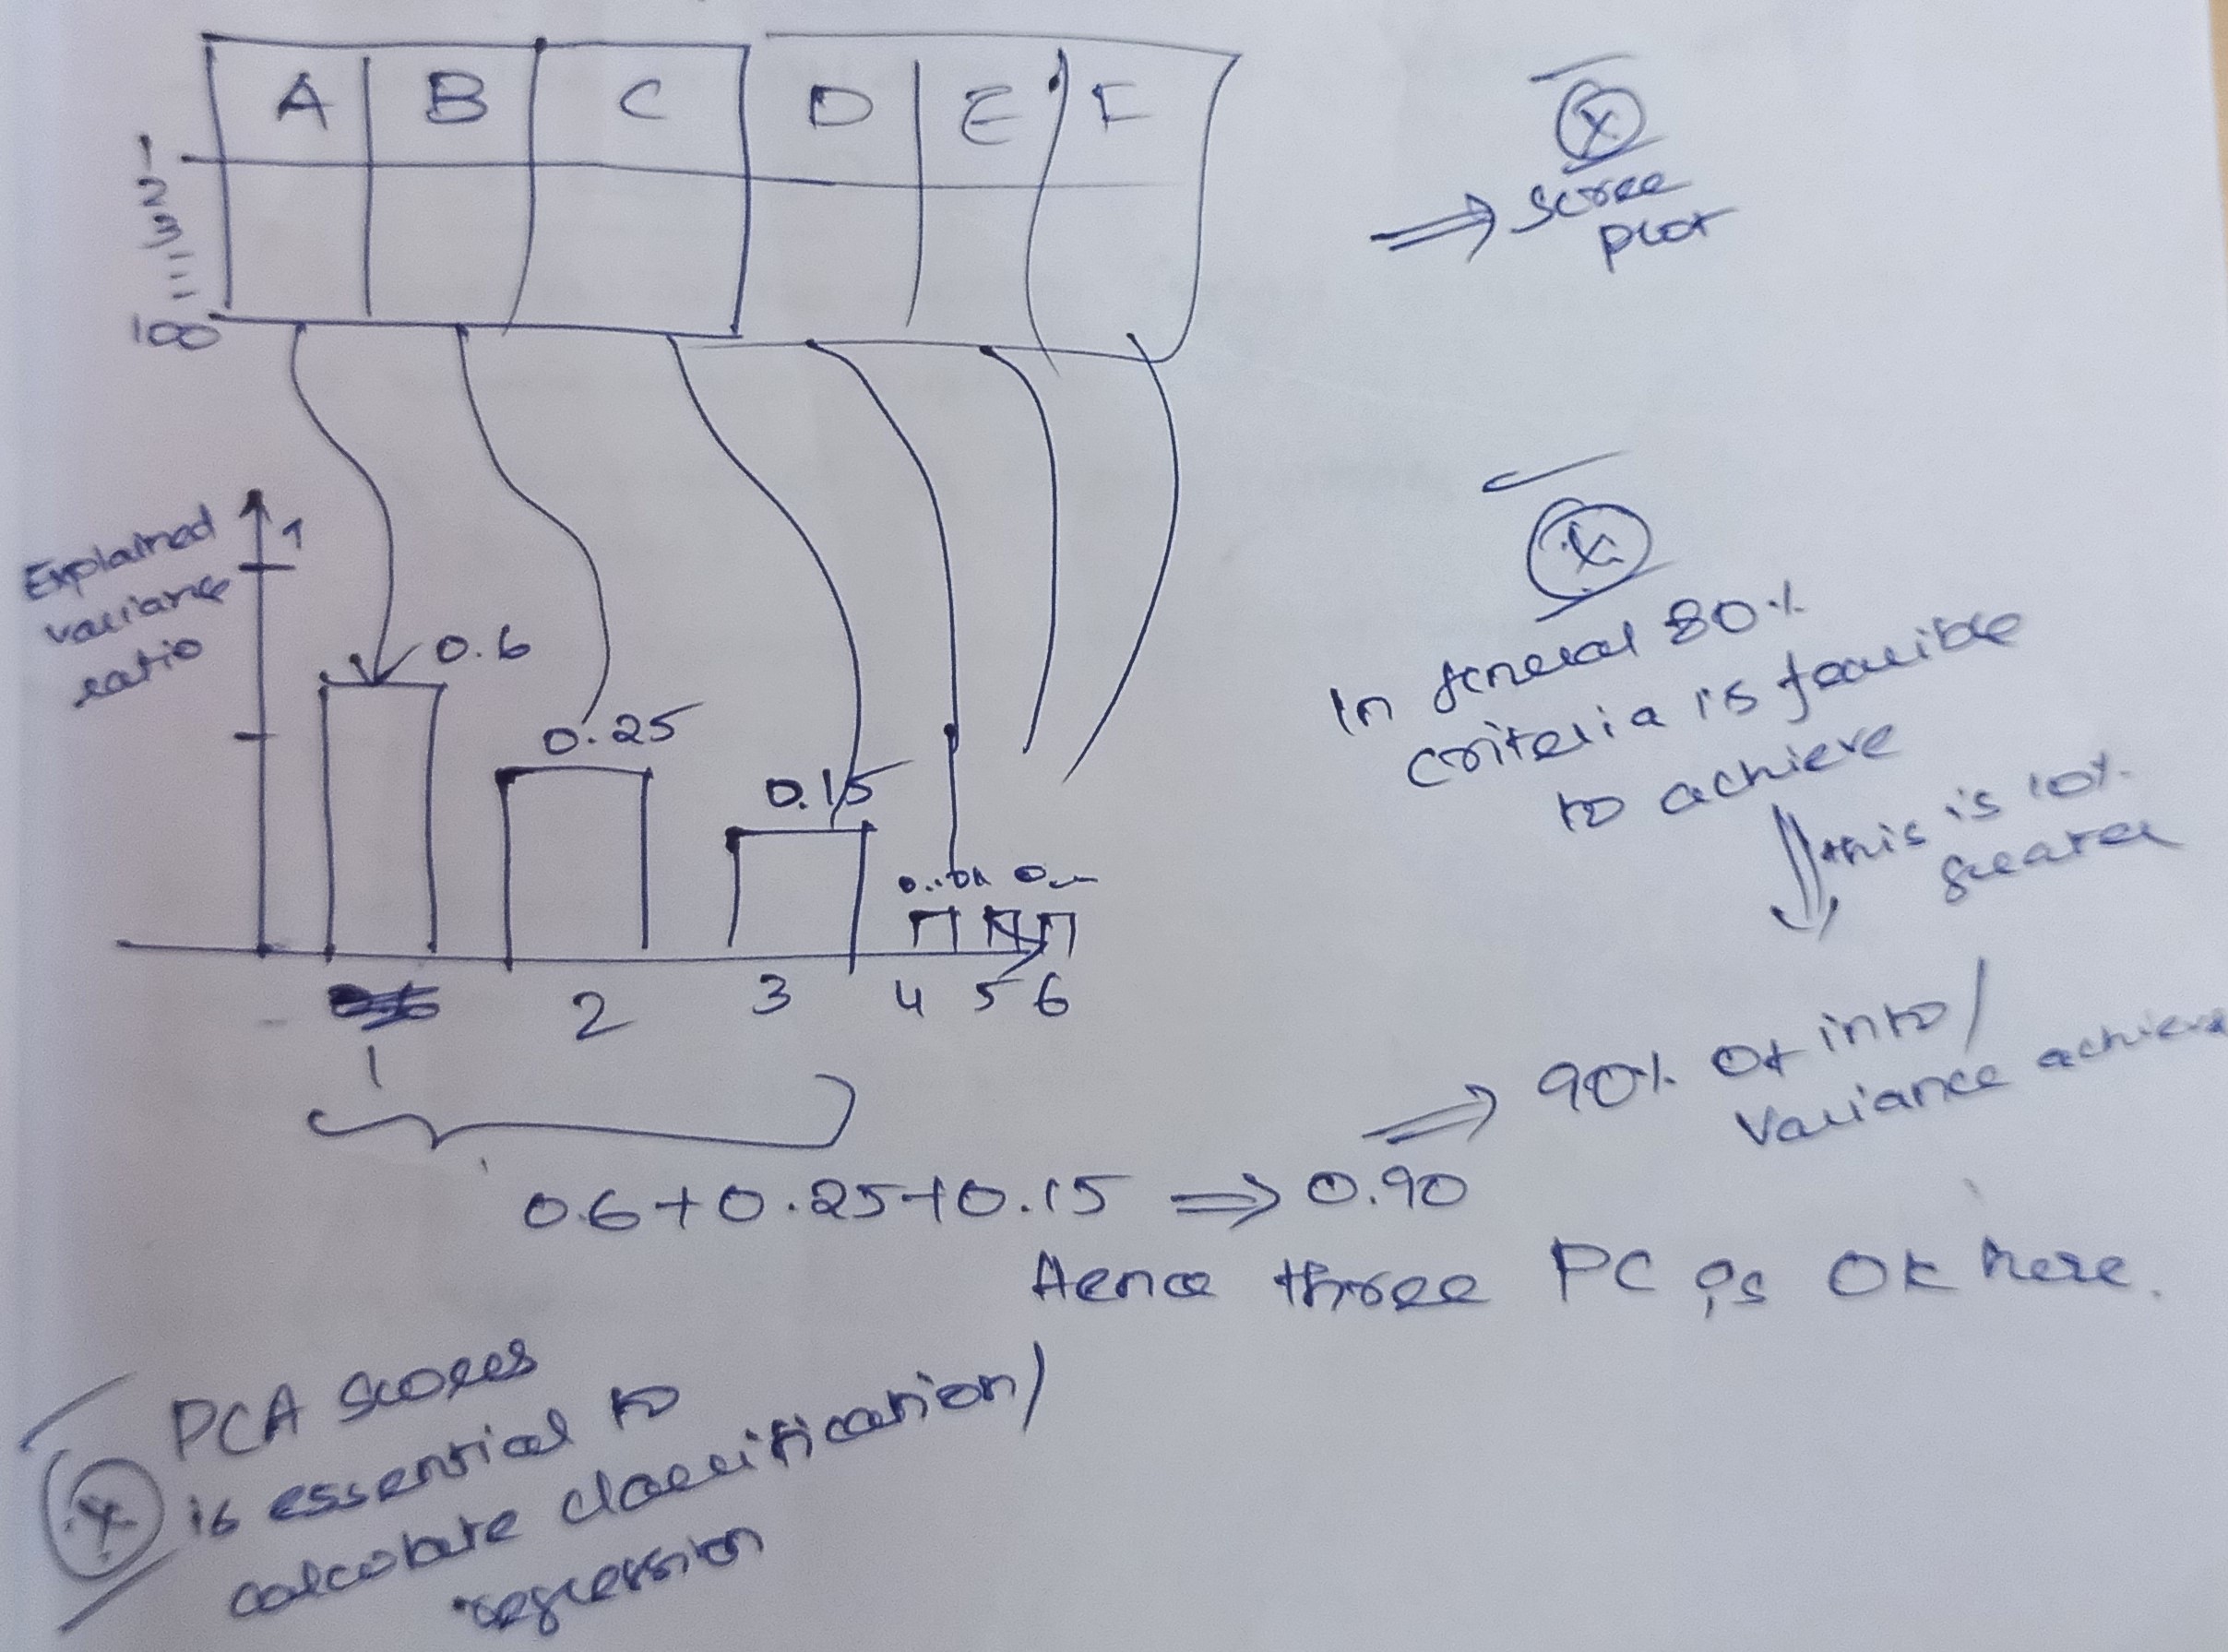 A B C D E F
1
2
3
100
scree
plot
Explained
variance
ratio
1
0.6
0.25
0.15
1 2 3 4 5 6
In general 80%
criteria is feasible
to achieve
this is 10%
greater
90% of info/
variance achieve
0.6+0.25+0.15 ⇒ 0.90
Hence three PC is OK here.
PCA scores
is essential to
calculate classification/
regression